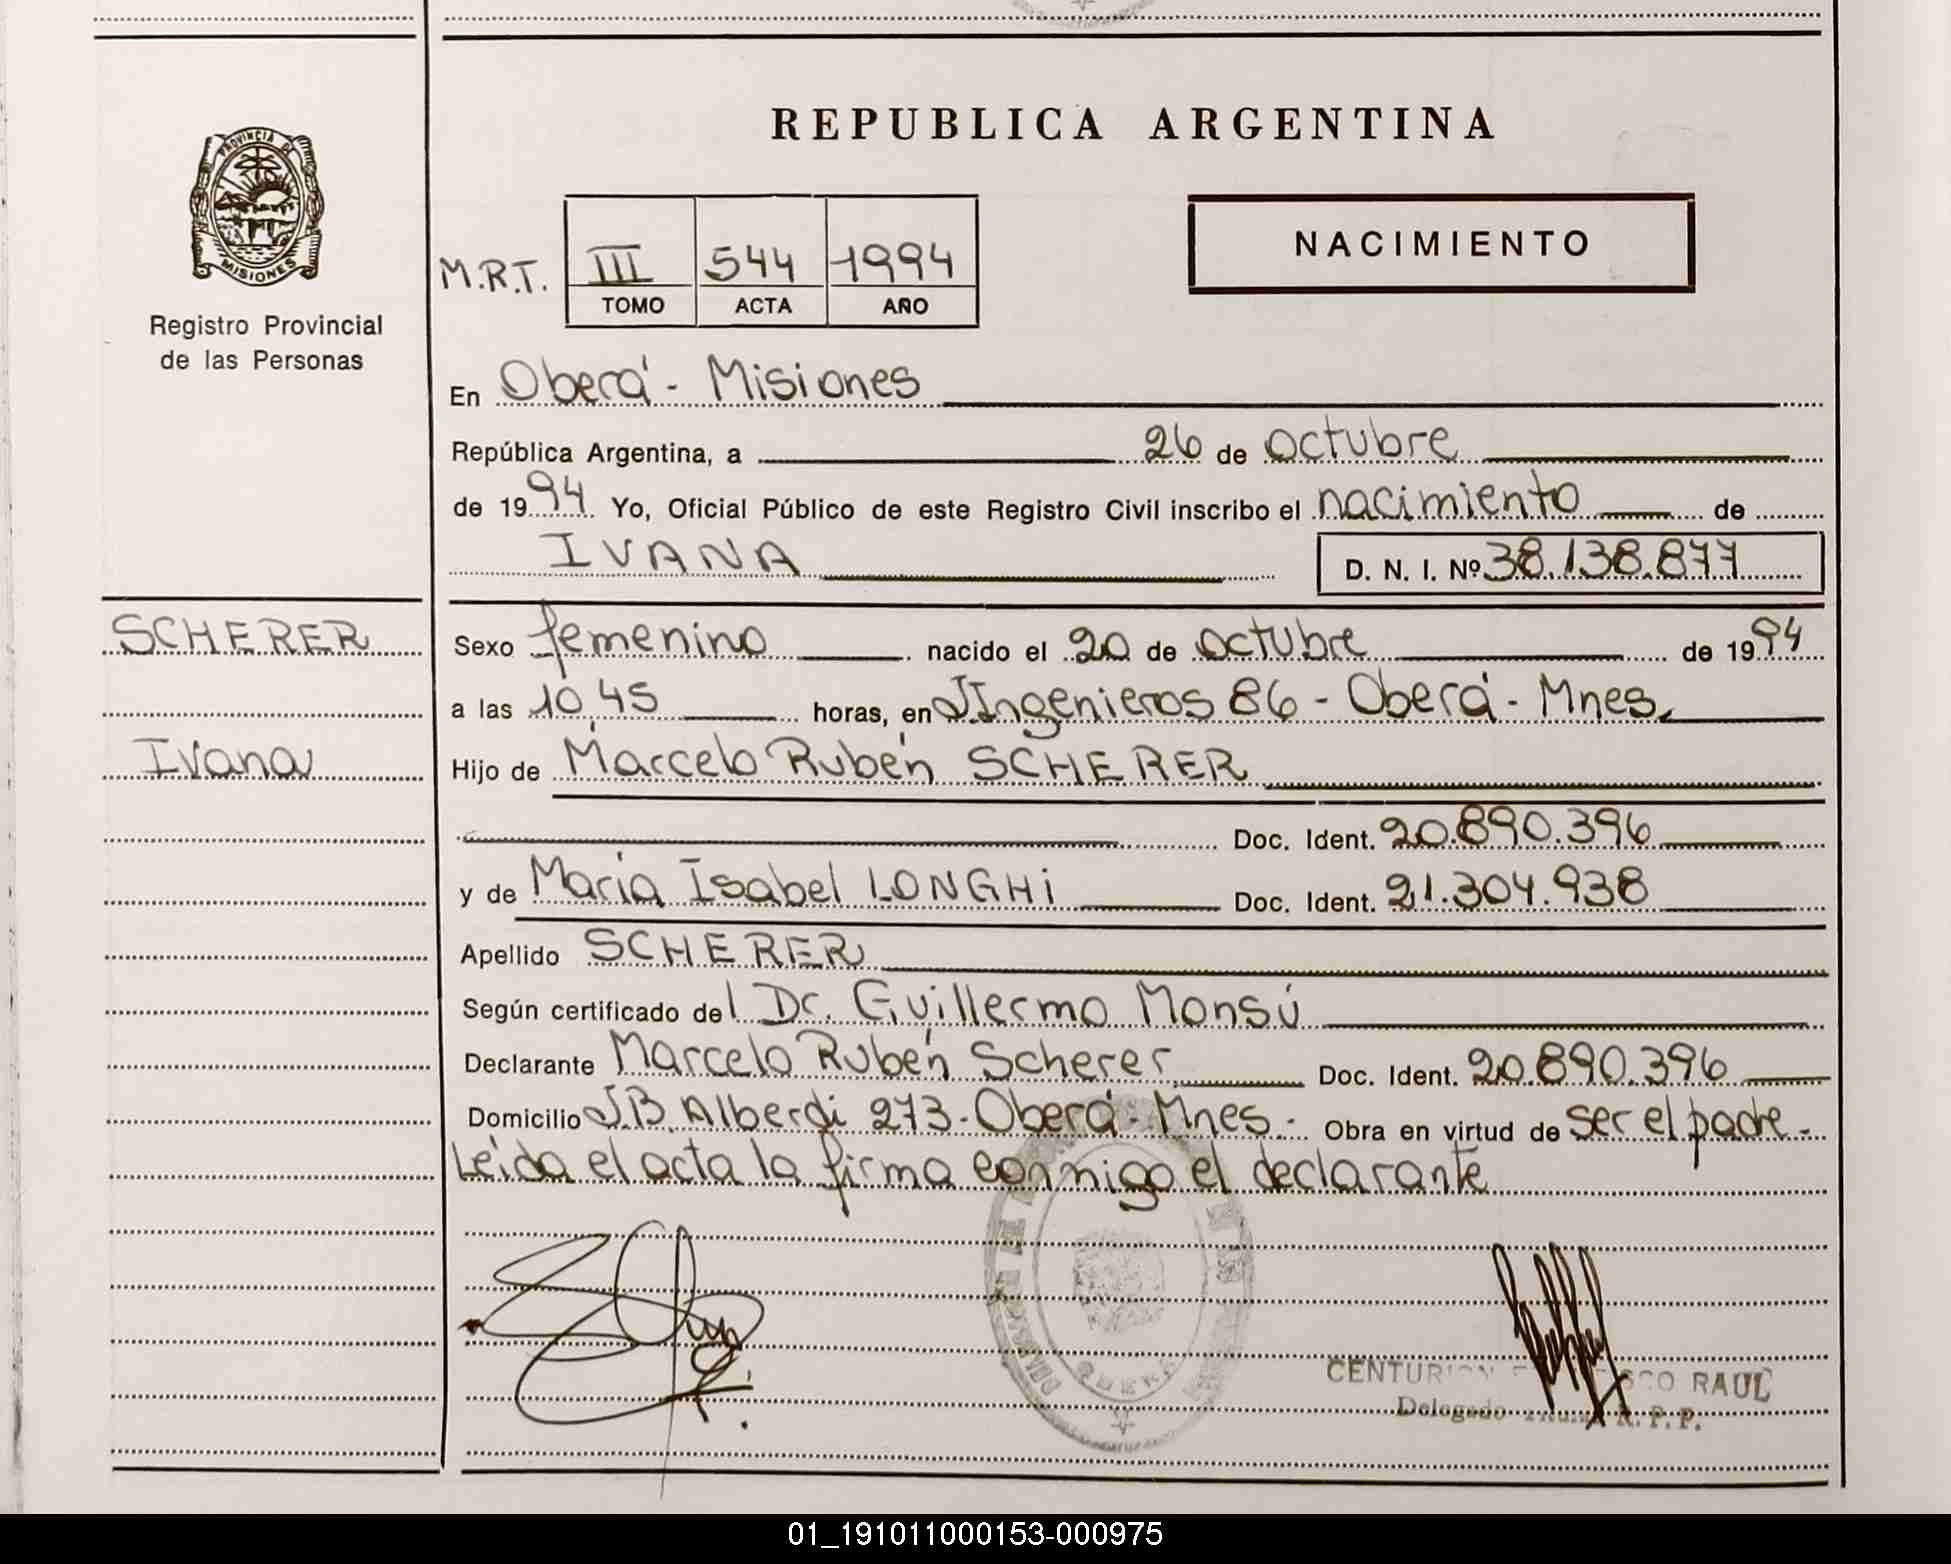 REPUBLICA ARGENTINA
PROVINCIA DE
MISIONES
Registro Provincial
de las Personas
NACIMIENTO
M.R.T. III 544 1994
TOMO ACTA AÑO
En Oberá - Misiones
República Argentina, a 26 de octubre
de 1994 Yo, Oficial Público de este Registro Civil inscribo el nacimiento de
IVANA D. N. I. Nº 38.138.877
SCHERER
Ivana
Sexo femenino nacido el 20 de octubre de 1994
a las 10,45 horas, en JIngenieros 86 - Oberá - Mnes.
Hijo de Marcelo Rubén SCHERER
Doc. Ident. 20.890.396
y de María Isabel LONGHi Doc. Ident. 21.304.938
Apellido SCHERER
Según certificado del Dr. Guillermo Monsú
Declarante Marcelo Rubén Scherer Doc. Ident. 20.890.396
Domicilio J.B. Alberdi 273 - Oberá - Mnes - Obra en virtud de ser el padre -
Leída el acta la firma conmigo el declarante
CENTURION RAUL
Delegado R. P. P.
01_191011000153-000975